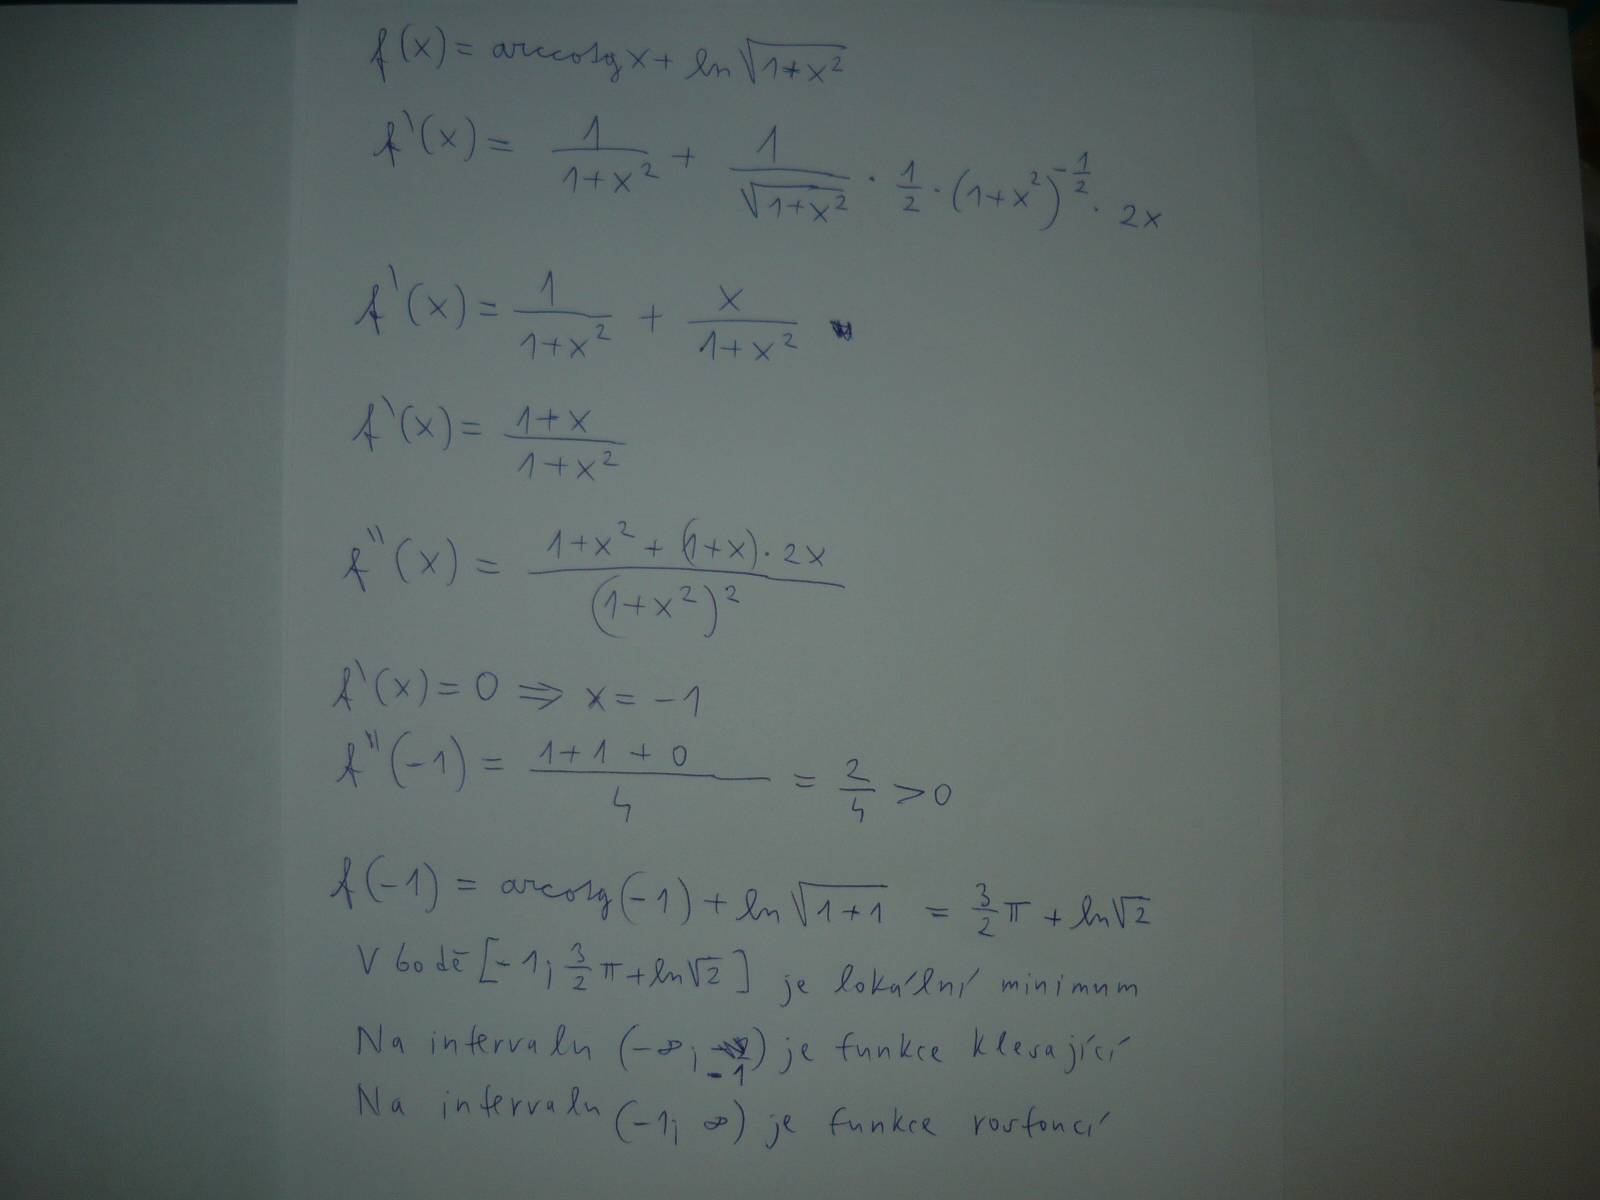 f(x) = arccotg x + ln √(1+x²)
f'(x) = 1/(1+x²) + 1/√(1+x²) · 1/2 · (1+x²)^(-1/2) · 2x
f'(x) = 1/(1+x²) + x/(1+x²)
f'(x) = (1+x)/(1+x²)
f''(x) = (1+x² + (1+x)·2x)/(1+x²)²
f'(x) = 0 ⇒ x = -1
f''(-1) = (1+1+0)/4 = 2/4 > 0
f(-1) = arcotg(-1) + ln √(1+1) = 3/2 π + ln√2
V bodě [-1; 3/2 π + ln√2] je lokální minimum
Na intervalu (-∞; -1) je funkce klesající
Na intervalu (-1; ∞) je funkce rostoucí